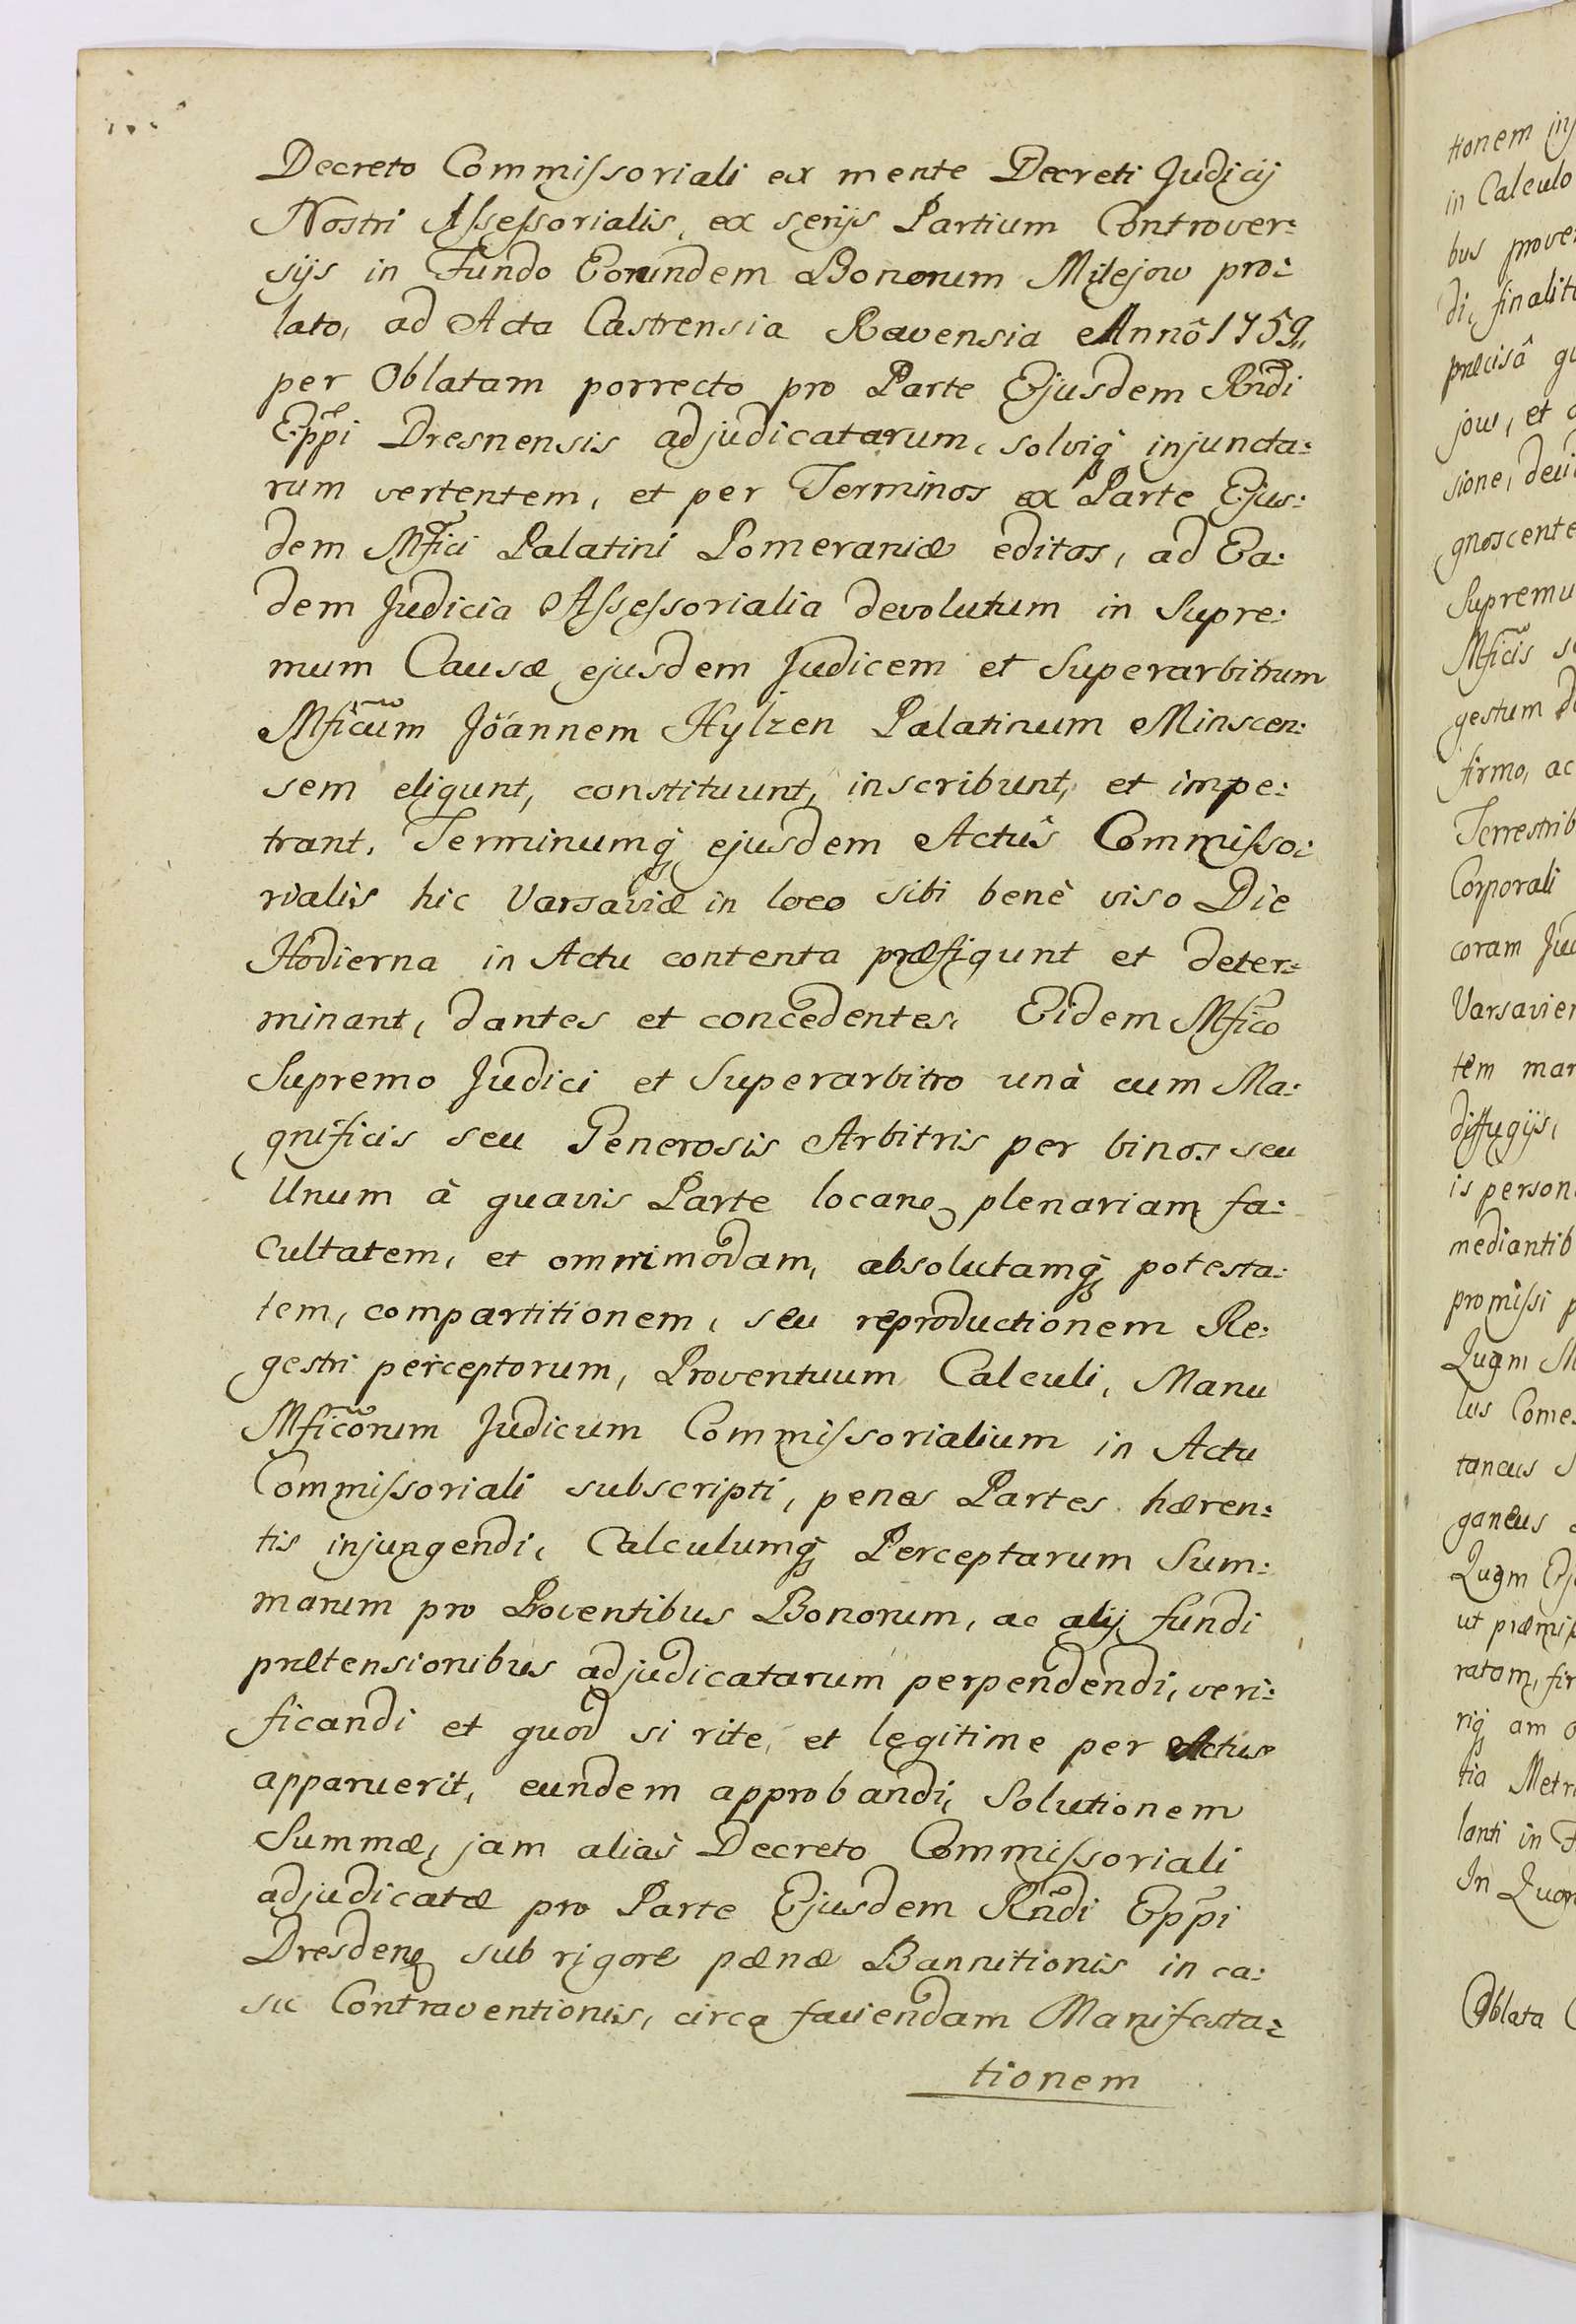 Decreto Commissoriali ex mente Decreti Judicij
Nostri Assessorialis, ex serijs Partium Controver:
sijs in Fundo Eorundem Bonorum Milejow pro:
lato, ad Acta Castrensia Ravensia Annô 1759,,
per Oblatam porrecto pro Parte Ejusdem Rñdi
Eppi Dresnensis adjudicatarum, solviq; injuncta:
rum vertentem, et per Terminos ex Parte Ejus:
dem Mfici Palatini Pomeraniæ editos, ad Ea:
dem Judicia Assessorialia devolutum in Supre:
mum Causæ ejusdem Judicem et Superarbitrum
Mficum Joannem Hylzen Palatinum Minscen:
sem eligunt, constituunt, inscribunt, et impe:
trant. Terminumq; ejusdem Actûs Commisso:
rialis hic Varsaviæ in loco sibi benè viso Die
Hodierna in Actu contenta præfigunt et deter:
minant, dantes et concedentes, Eidem Mfico
Supremo Judici et Superarbitro unà cum Ma:
gnificis seu Generosis Arbitris per binos seu
Unum à quavis Parte locanq plenariam fa:
cultatem, et omnimodam, absolutamq; potesta:
tem, compartitionem, seu reproductionem Re:
gestri perceptorum, Proventuum Calculi, Manu
Mficorum Judicum Commissorialium in Actu
Commissoriali subscripti, penes Partes hæren:
tis injungendi, Calculumq; Perceptarum Sum:
marum pro Proventibus Bonorum, ac alij fundi
prætensionibus adjudicatarum perpendendi, veri:
ficandi et quod si rite, et legitime per Actus
apparuerit, eundem approbandi, Solutionem
Summæ, jam aliàs Decreto Commissoriali
adjudicatæ pro Parte Ejusdem Rñdi Eppi
Dresdenq sub rigore pænæ Bannitionis in ca:
su Contraventionis, circa faciendam Manifesta:
tionem
tionem
in Calculo
bus
di, finalit
præcisâ
jow, et
sione,
gnoscente
Supremu
Mficis
gestum
firmo, ac
Terrestrib
Corporali
coram Jud
Varsavien
tem man
diffugijs,
is person
mediantib
promissi p
Quam M
lus Comes
taneus S
ganeus
Quam Ej
ut præmis
ratam, fir
riq; am
tia Metri
lanti in F
In Quor
Oblata